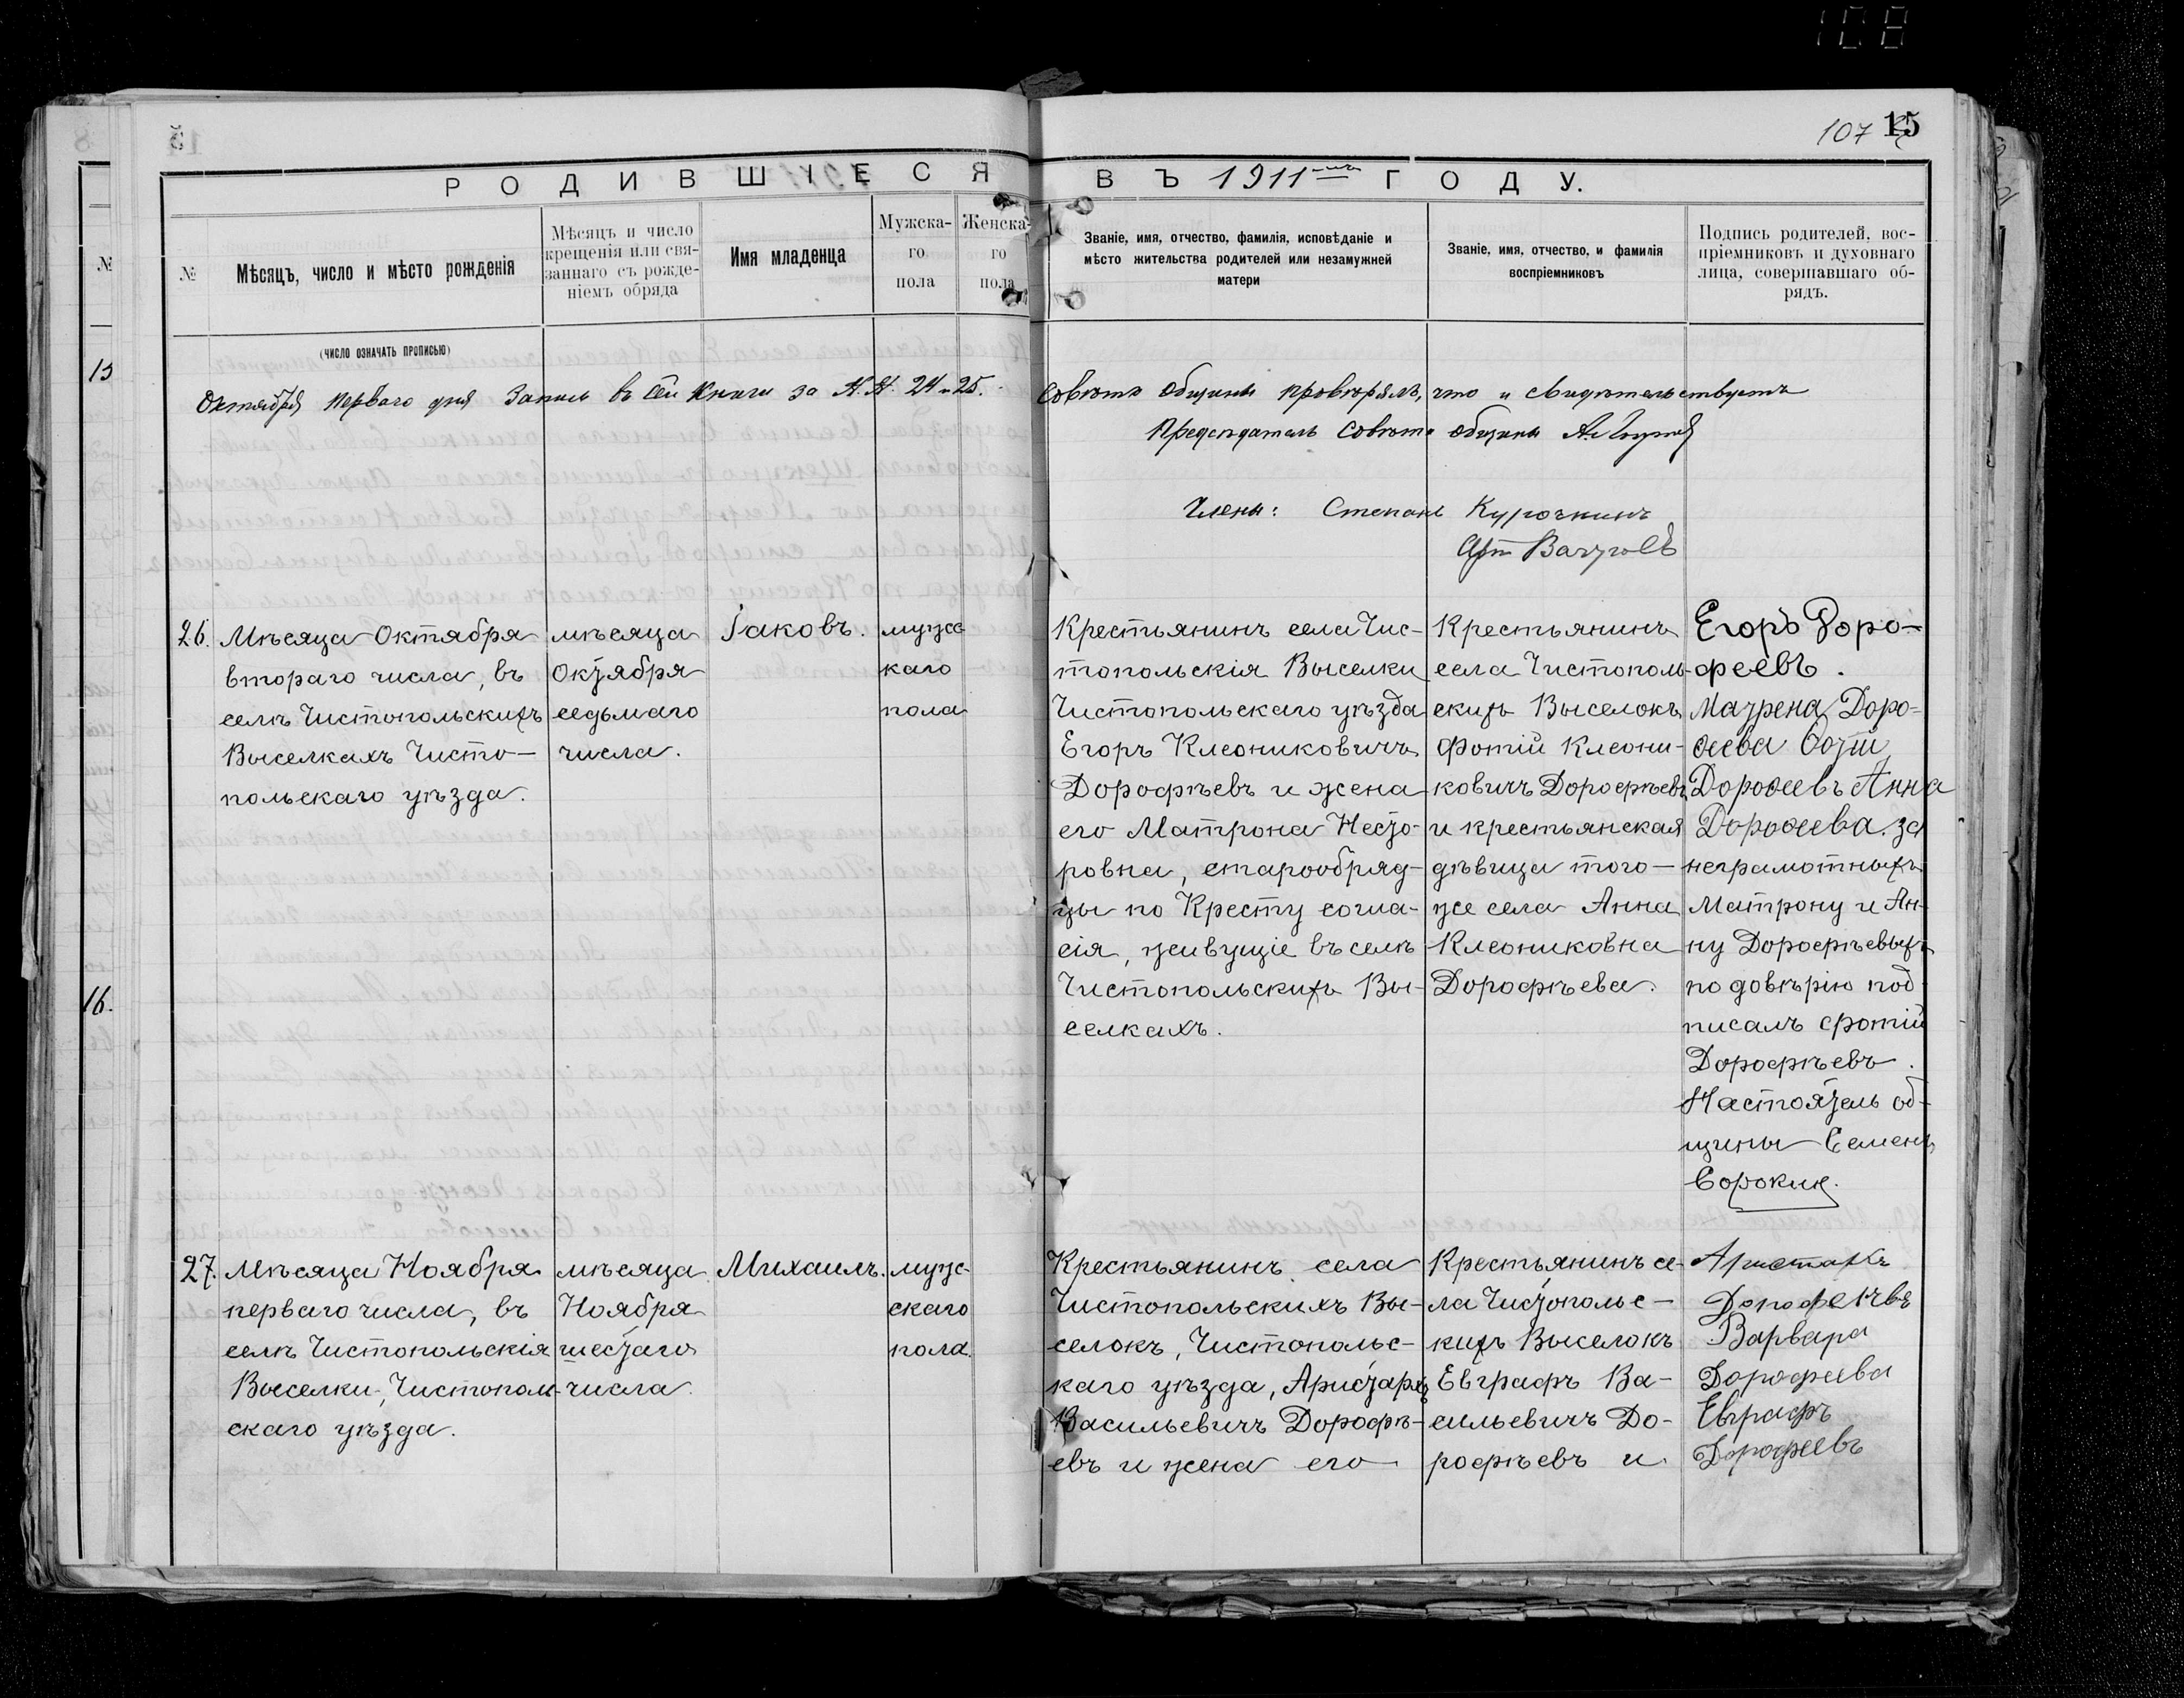 108
107 15
РОДИВШІЕСЯ ВЪ 1911 ГОДУ.
№
№
Мѣсяцъ, число и мѣсто рожденія
Мѣсяцъ и число
крещенія или свя-
заннаго съ рожде-
ніемъ обряда
Имя младенца
Мужска-
го
пола
Женска-
го
пола
Званіе, имя, отчество, фамилія, исповѣданіе и
мѣсто жительства родителей или незамужней
матери
Званіе, имя, отчество, и фамилія
воспріемниковъ
Подпись родителей, вос-
пріемниковъ и духовнаго
лица, совершавшаго об-
рядъ.
(ЧИСЛО ОЗНАЧАТЬ ПРОПИСЬЮ)
15
16.
Октября перваго дня запись въ сей книги за N.N. 24 и 25. Совѣтъ общины провѣрялъ, что и свидѣтельствуетъ
Предсѣдатель Совѣта общины
Члены: Степанъ Курочкинъ
26.
Мѣсяца Октября
втораго числа, въ
селѣ Чистопольскихъ
Выселкахъ Чисто-
польскаго уѣзда.
мѣсяца
Октября
седьмаго
числа.
Іаковъ.
мужс
каго
пола
Крестьянинъ села Чис-
топольскія Выселки
Чистопольскаго уѣзда
Егоръ Клеониковичъ
Дорофѣевъ и жена
его Матрона Несто-
ровна, старообряд-
цы по Кресту согла-
сія, живущіе въ селѣ
Чистопольскихъ Вы-
селкахъ.
Крестьянинъ
села Чистополь-
скихъ Выселокъ
Фотій Клеони-
ковичъ Дорофѣевъ
и крестьянская
дѣвица того-
же села Анна
Клеониковна
Дорофѣева.
Егоръ Доро-
феевъ.
Матрена Доро-
ѳеева Ѳотій
Дороѳеевъ Анна
Дороѳеева. за
неграмотныхъ
Матрону и Ан-
ну Дорофѣевыхъ
по довѣрію под-
писалъ Фотій
Дорофѣевъ.
Настоятель об-
щины Семенъ
Сорокин.
27.
Мѣсяца Ноября
перваго числа, въ
селѣ Чистопольскія
Выселки, Чистополь-
скаго уѣзда.
мѣсяца
Ноября
шестаго
числа.
Михаилъ.
мужс-
скаго
пола.
Крестьянинъ села
Чистопольскихъ Вы-
селокъ, Чистопольс-
каго уѣзда, Аристархъ
Васильевичъ Дорофѣ-
евъ и жена его
Крестьянинъ се-
ла Чистопольс-
кихъ Выселокъ
Евграфъ Ва-
сильевичъ До-
рофѣевъ и
Аристахъ
Дорофеивъ
Варвара
Дорофеева
Евграфъ
Дорофеевъ